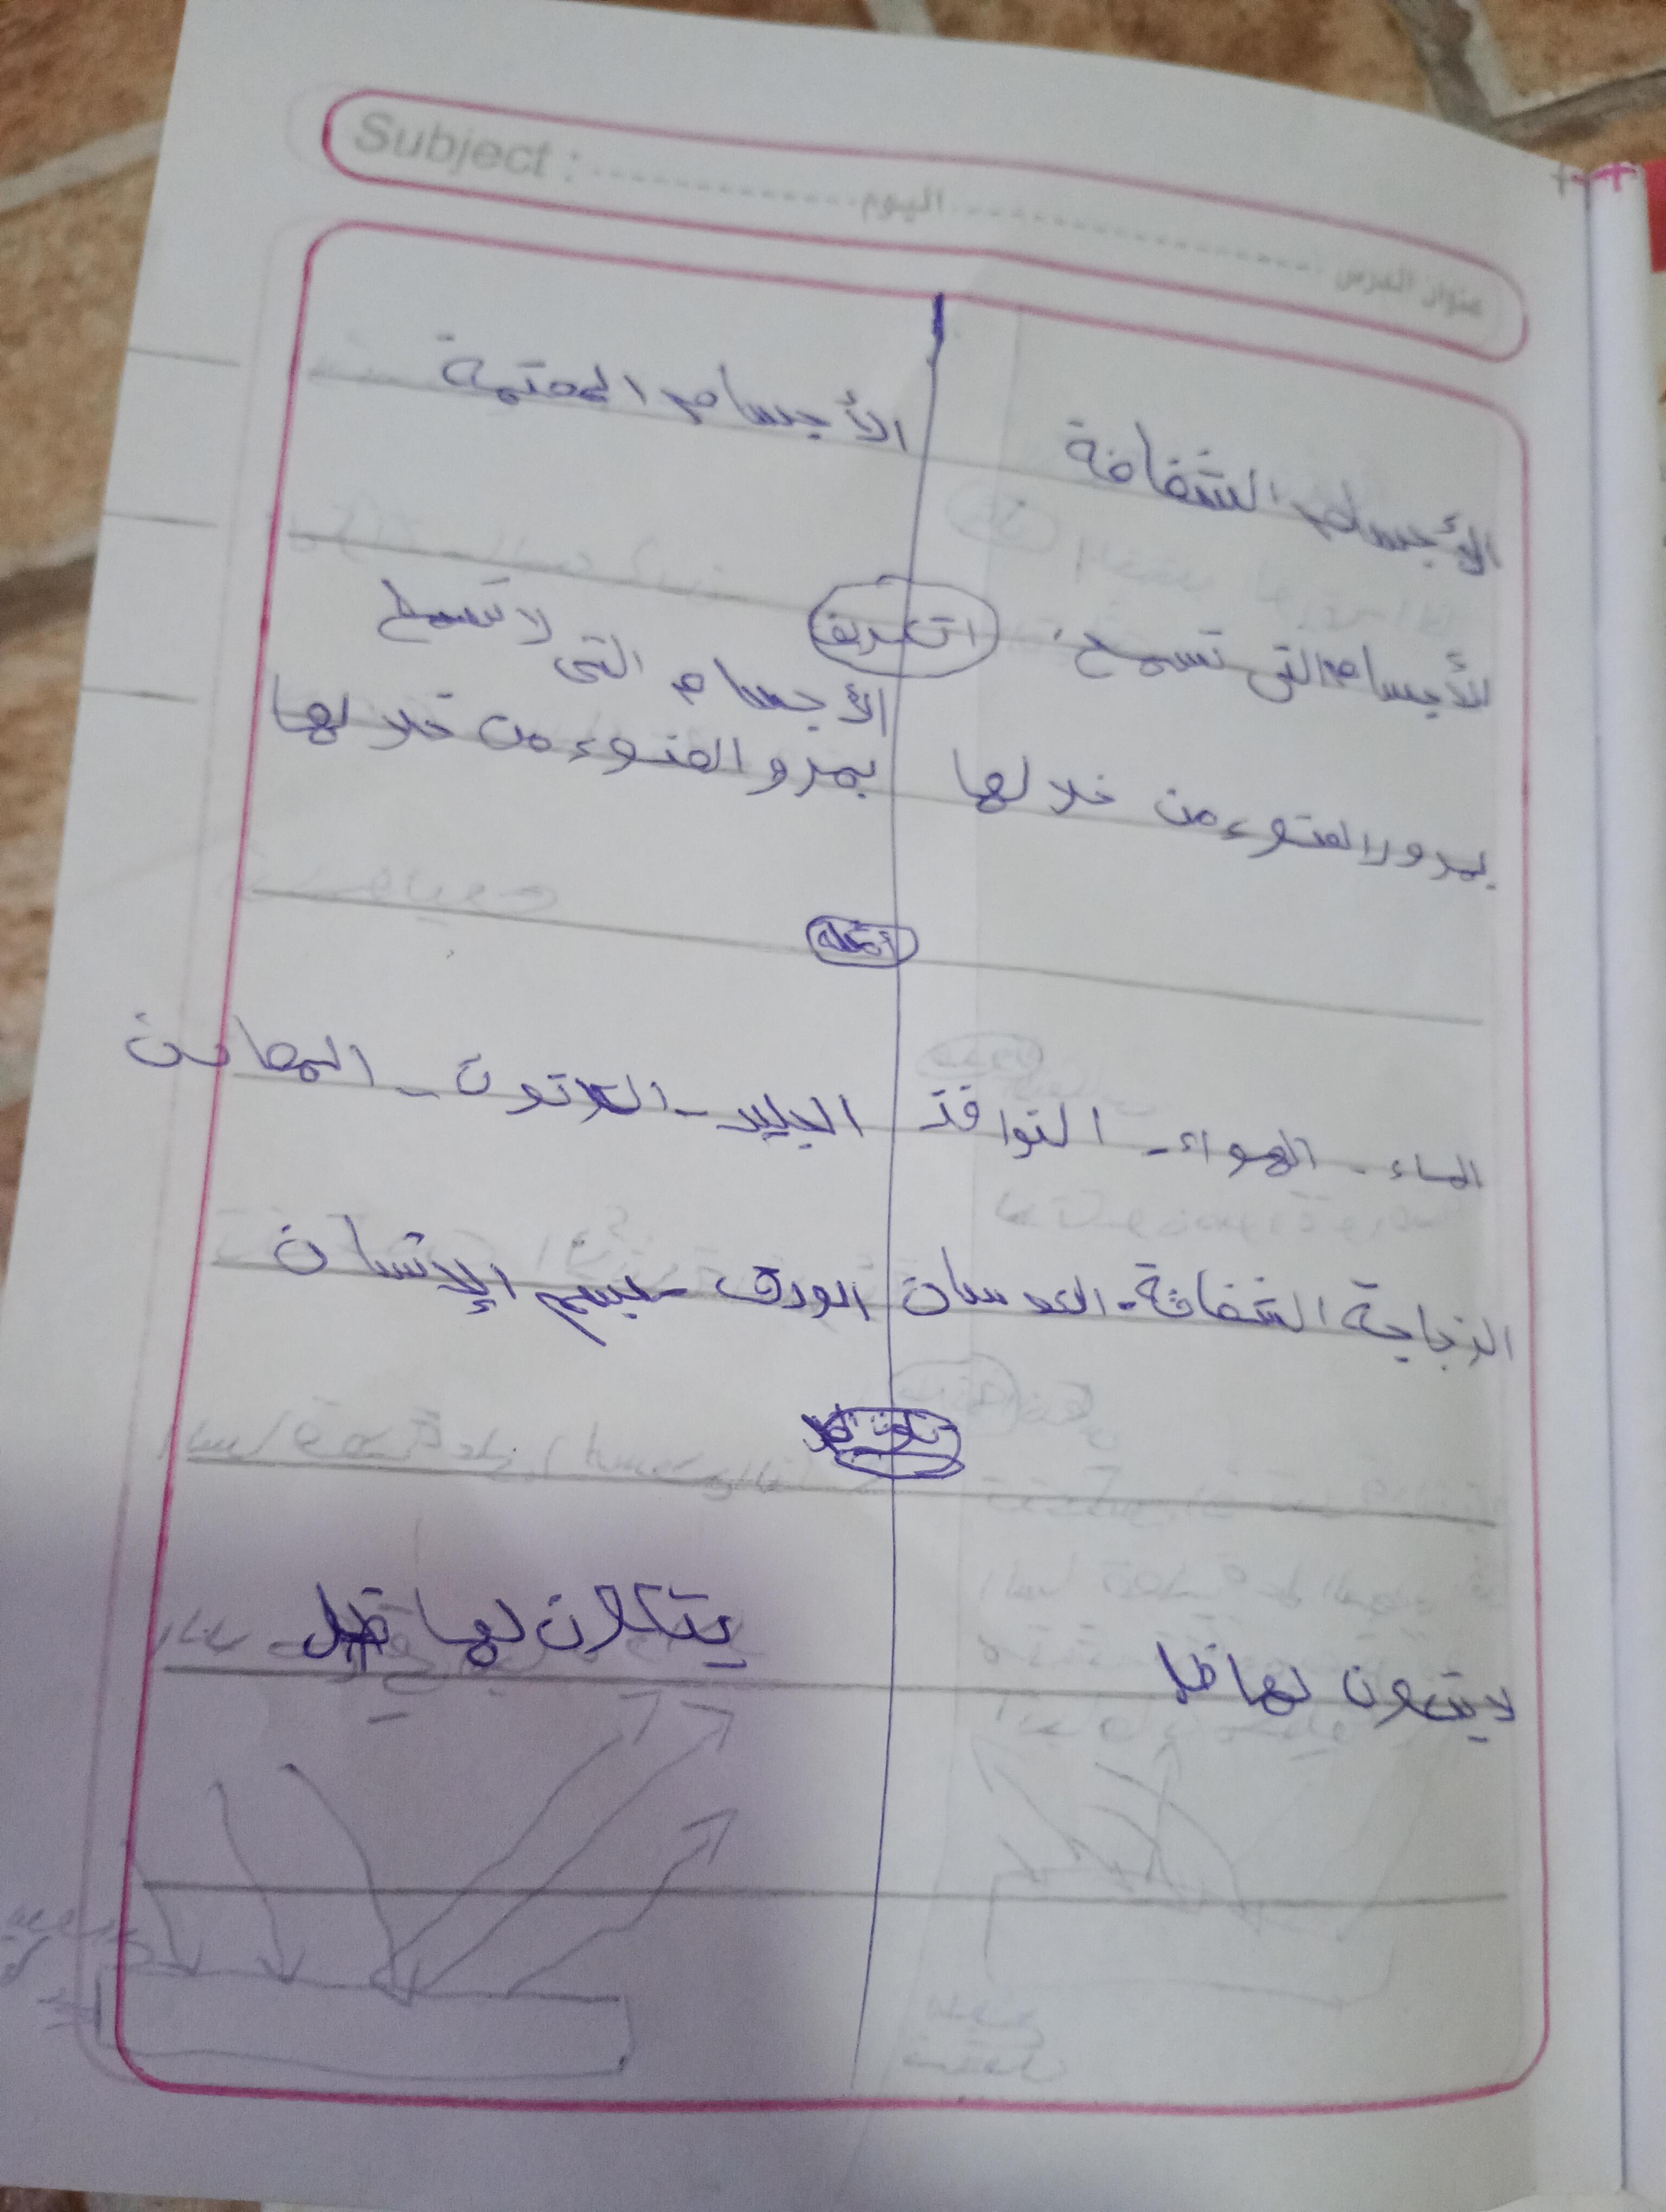 Subject : اليوم عنوان الدرس
الأجسام الشفافة
الأجسام المعتمة
التعريف
الأجسام التى تسمح
بمرور الضوء من خلالها
الأجسام التى لا تسمح
بمرو الضوء من خلالها
أمثله
الماء - الهواء - النوافذ
الزجاجة الشفافة - العدسات
الجليد - الكرتون - المعادن
الورق - جسم الإنسان
تكون الظل
لا يتكون لها ظل
يتكلان لها ظل